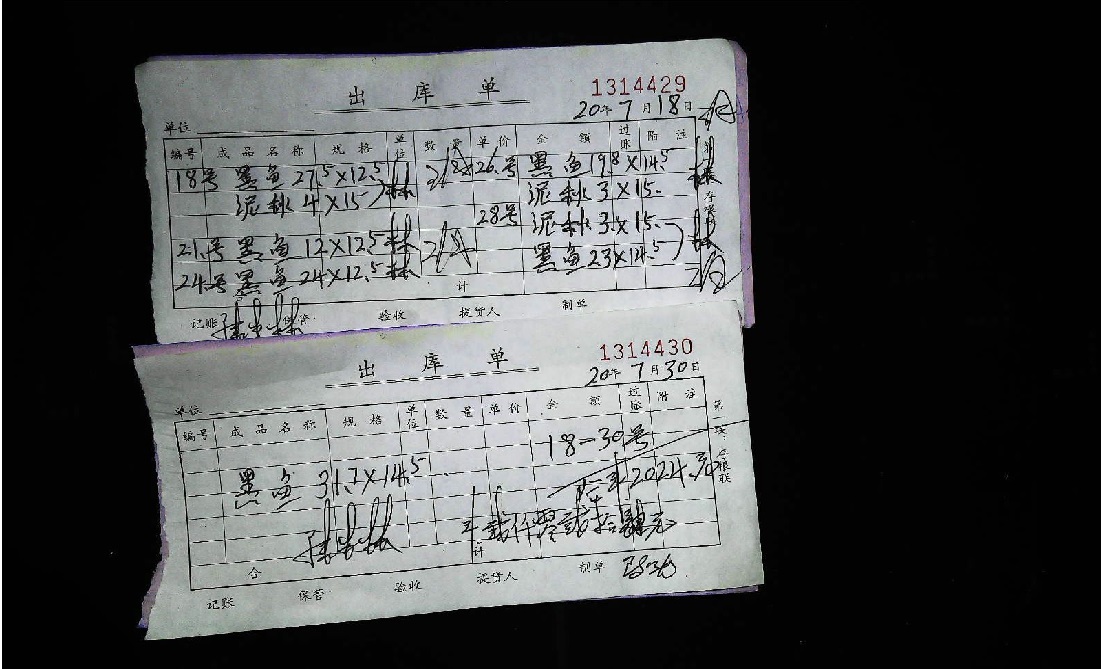 出库单
1314429
20年7月18日
单位
编号 成品名称 规格 单位 数量 单价 金额 过账 附注
18号 黑鱼 27.5×12.5 26号 黑鱼 19.8×14.5
泥秋 4×15 泥秋 3×15
28号 泥秋 3×15
21号 黑鱼 12×12.5 黑鱼 23×14.5
24号 黑鱼 24×12.5
计
记账 保管 验收 提货人 制单
出库单
1314430
20年7月30日
单位
编号 成品名称 规格 单位 数量 单价 金额 过账 附注
18-30号
黑鱼 31.7×14.5 2024元
贰仟零贰拾肆元
合 计
记账 保管 验收 提货人 制单